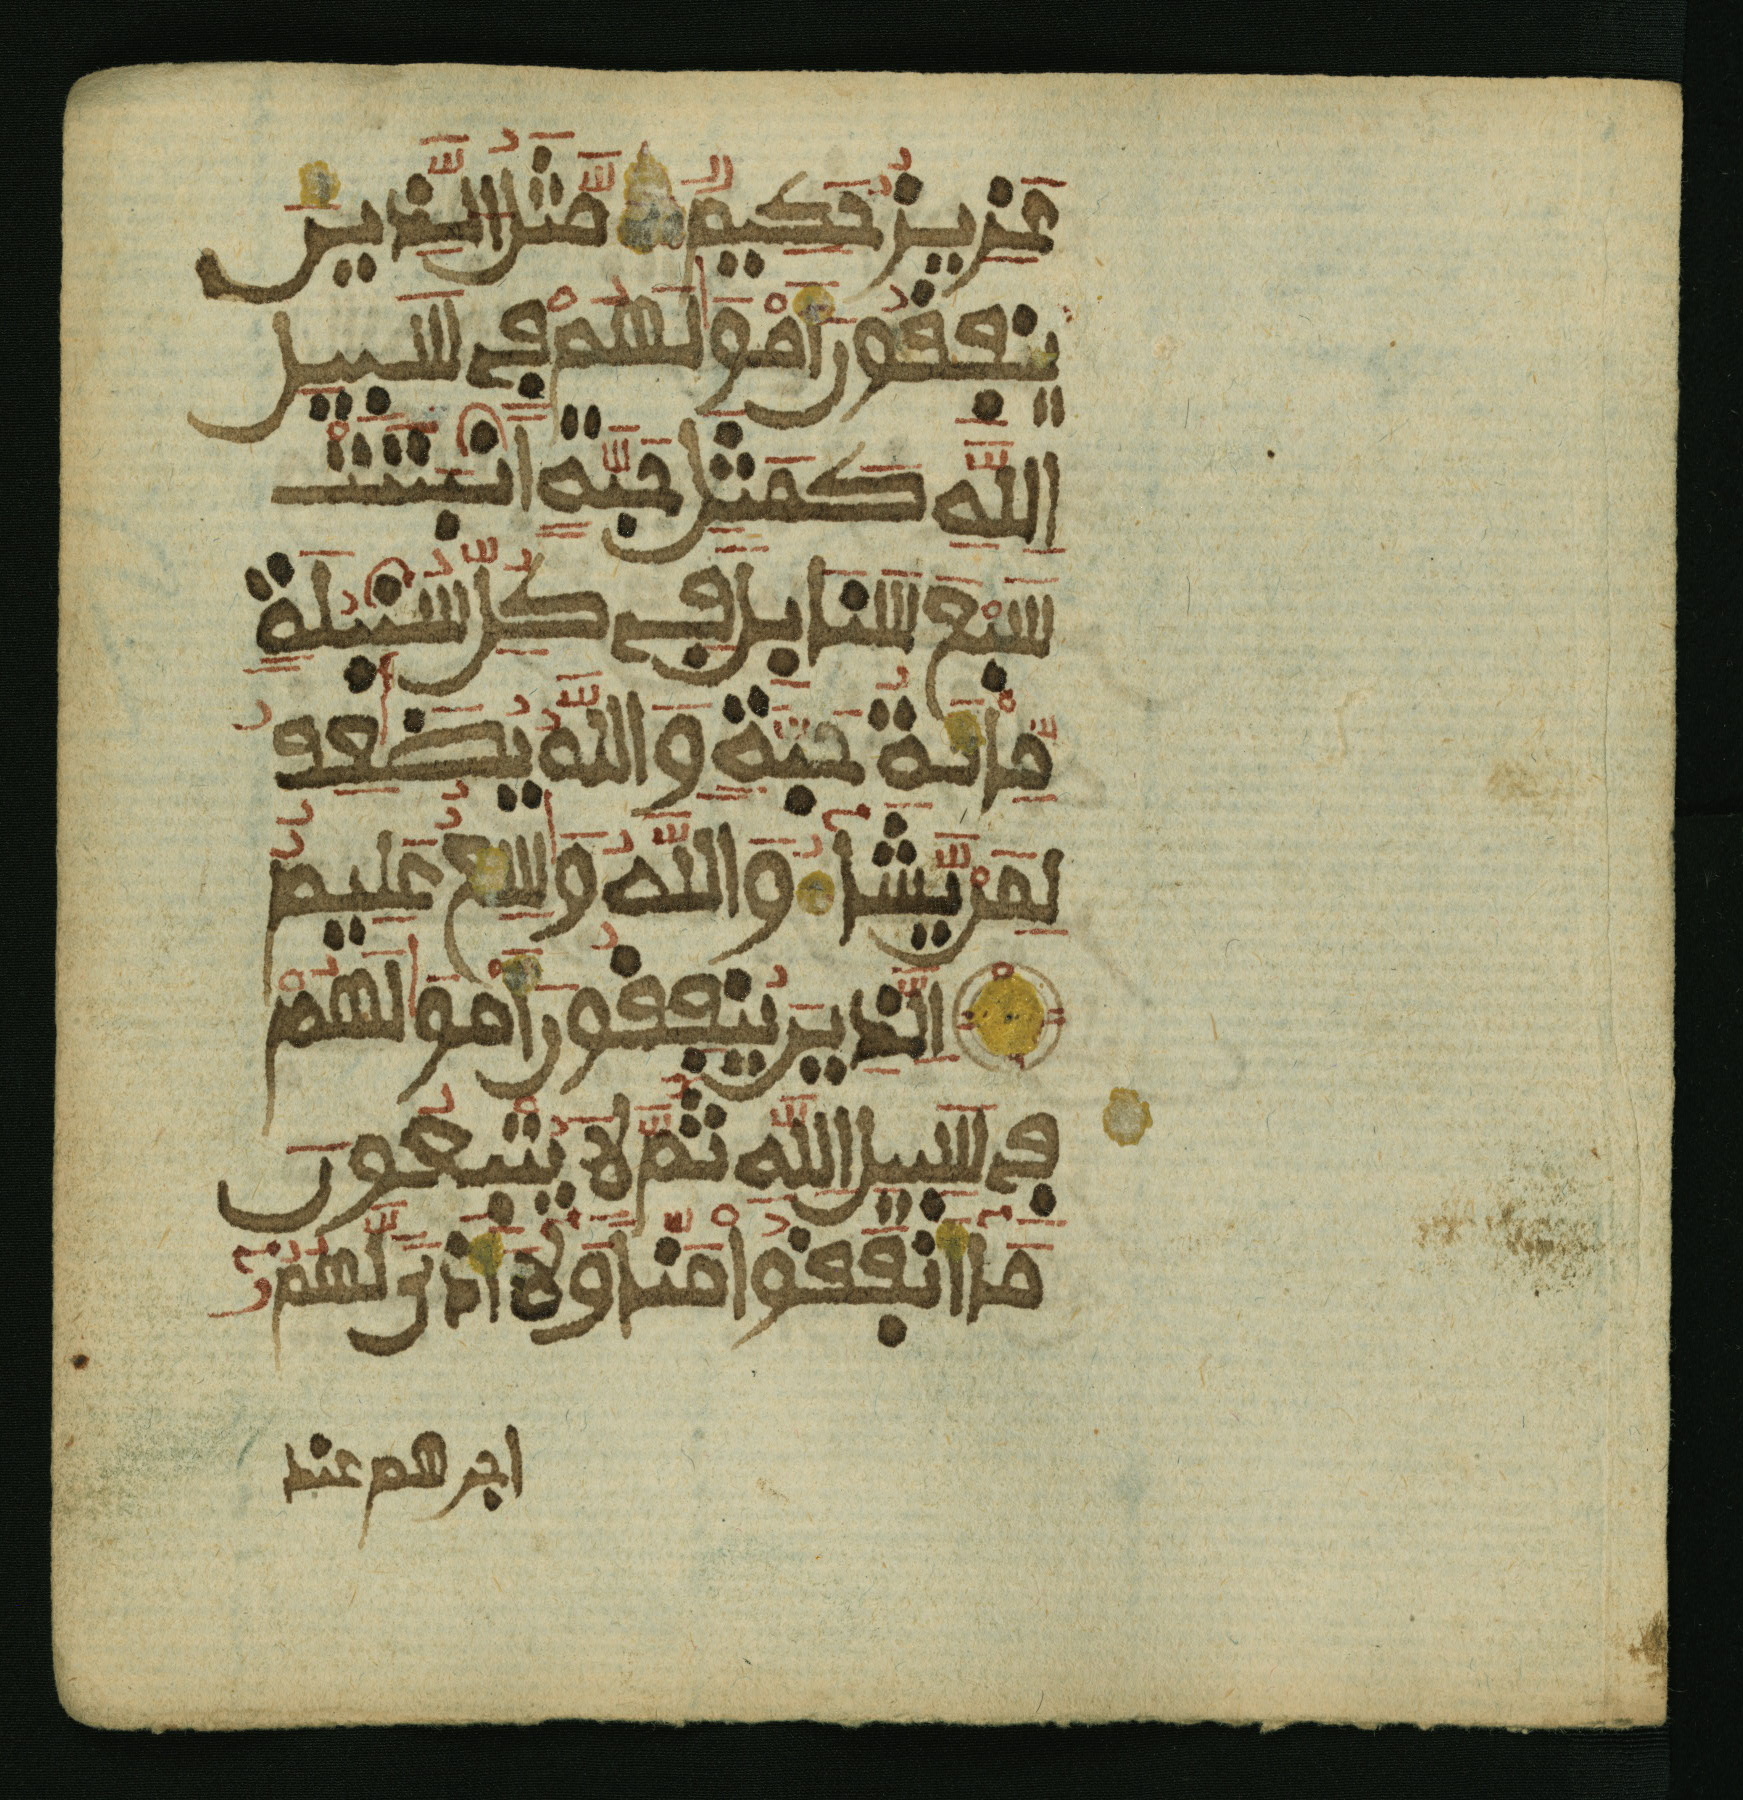 عَزِيزٌ حَكِيمٌ مَّثَلُ الَّذِينَ
يُنفِقُونَ أَمْوَٰلَهُمْ فِي سَبِيلِ
اللَّهِ كَمَثَلِ حَبَّةٍ اَنۢبَتَتْ
سَبْعَ سَنَابِلَ فِي كُلِّ سُنۢبُلَةٍ
مِّاْئَةُ حَبَّةٍ وَاللَّهُ يُضَٰعِفُ
لِمَنْ يَّشَآءُ وَاللَّهُ وَٰسِعٌ عَلِيمٌ
الَّذِينَ يُنفِقُونَ أَمْوَٰلَهُمْ
فِي سَبِيلِ اللَّهِ ثُمَّ لَا يُتْبِعُونَ
مَآ أَنفَقُواْ مَنّاً وَلَآ أَذىً لَّهُمُۥٓ
اجرهم عند